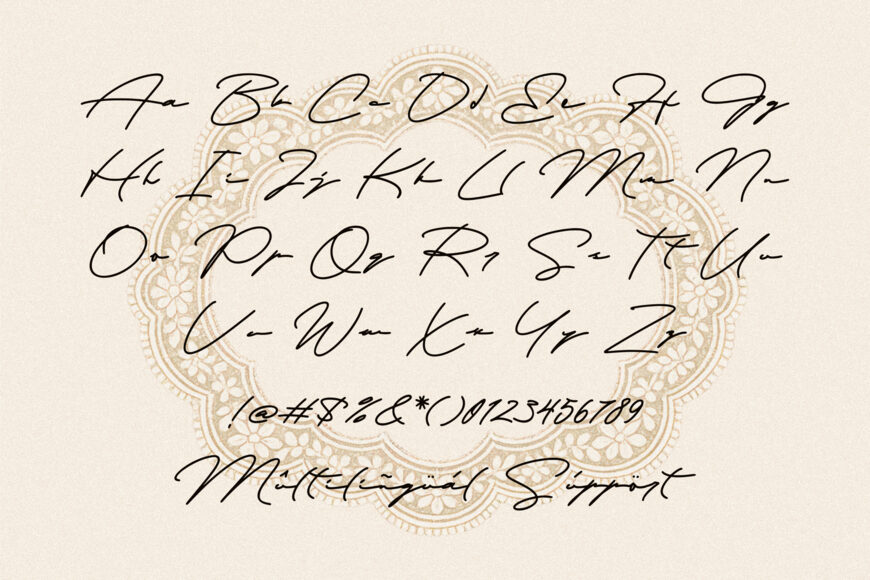 Aa Bb Cc Dd Ee Ff Gg
Hh Ii Jj Kk Ll Mm Nn
Oo Pp Qq Rr Ss Tt Uu
Vv Ww Xx Yy Zz
!@#$%&*()0123456789
Múltiliñgüál Súppöst